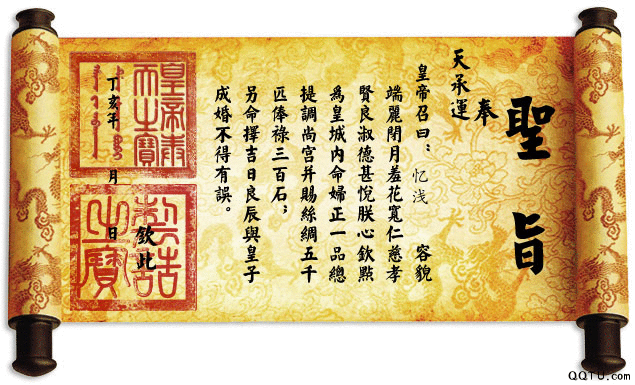 聖旨
奉
天承運
皇帝召曰：忆浅 容貌
端麗閉月羞花寬仁慈孝
賢良淑德甚悅朕心欽點
爲皇城內命婦正一品總
提調尚宮并賜絲綢五千
匹俸祿三百石；
另命擇吉日良辰與皇子
成婚不得有誤。
欽此
丁亥年 月 日
皇帝奉
天之寶
制誥
之寶
QQTU.com